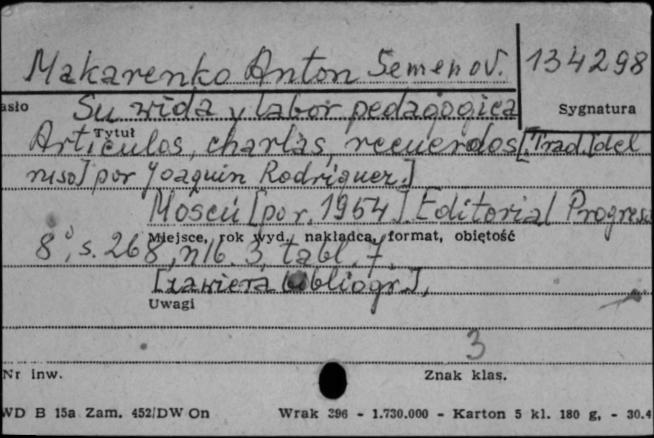 Makarenko Anton Semenov. 134298
asło Su wida y labor pedagogica Sygnatura
Tytuł
Articulos, charlas, recuerdos [Trad.[del
ruso] por Joaquin Rodriguez.]
Moscú [po r. 1954]. Editorial Progreso
Miejsce, rok wyd., nakładca, format, objętość
8°, s. 268, nlb. 3, tabl. 7.
[zawiera bibliogr.],
Uwagi
3
Nr inw. Znak klas.
WD B 15a Zam. 452/DW On Wrak 296 - 1.730.000 - Karton 5 kl. 180 g, - 30.4